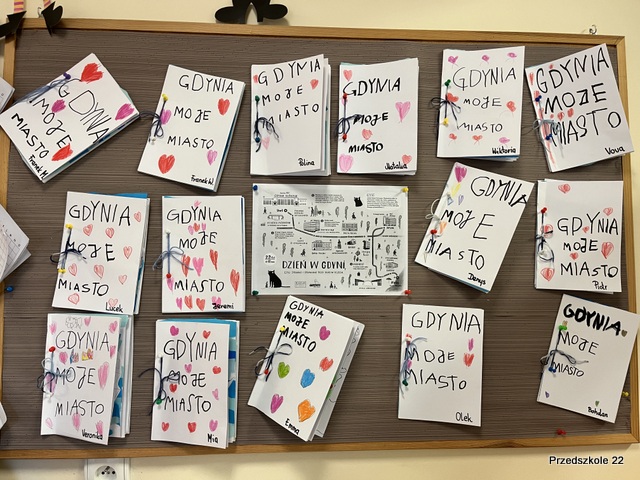 GDYNIA
MOJE
MIASTO
Franek M.
GDYNIA
MOJE
MIASTO
Franek W.
GDYNIA
MOJE
MIASTO
Polina
GDYNIA
MOJE
MIASTO
Natalia
GDYNIA
MOJE
MIASTO
Wiktoria
GDYNIA
MOJE
MIASTO
Vova
GDYNIA
MOJE
MIASTO
Lucek
GDYNIA
MOJE
MIASTO
Jeremi
DZIEŃ W GDYNI
GDYNIA
MOJE
MIASTO
Denys
GDYNIA
MOJE
MIASTO
Piotr
GDYNIA
MOJE
MIASTO
Veronika
GDYNIA
MOJE
MIASTO
Mia
GDYNIA
MOJE
MIASTO
Emma
GDYNIA
MOJE
MIASTO
Olek
GDYNIA
MOJE
MIASTO
Bohdan
Przedszkole 22